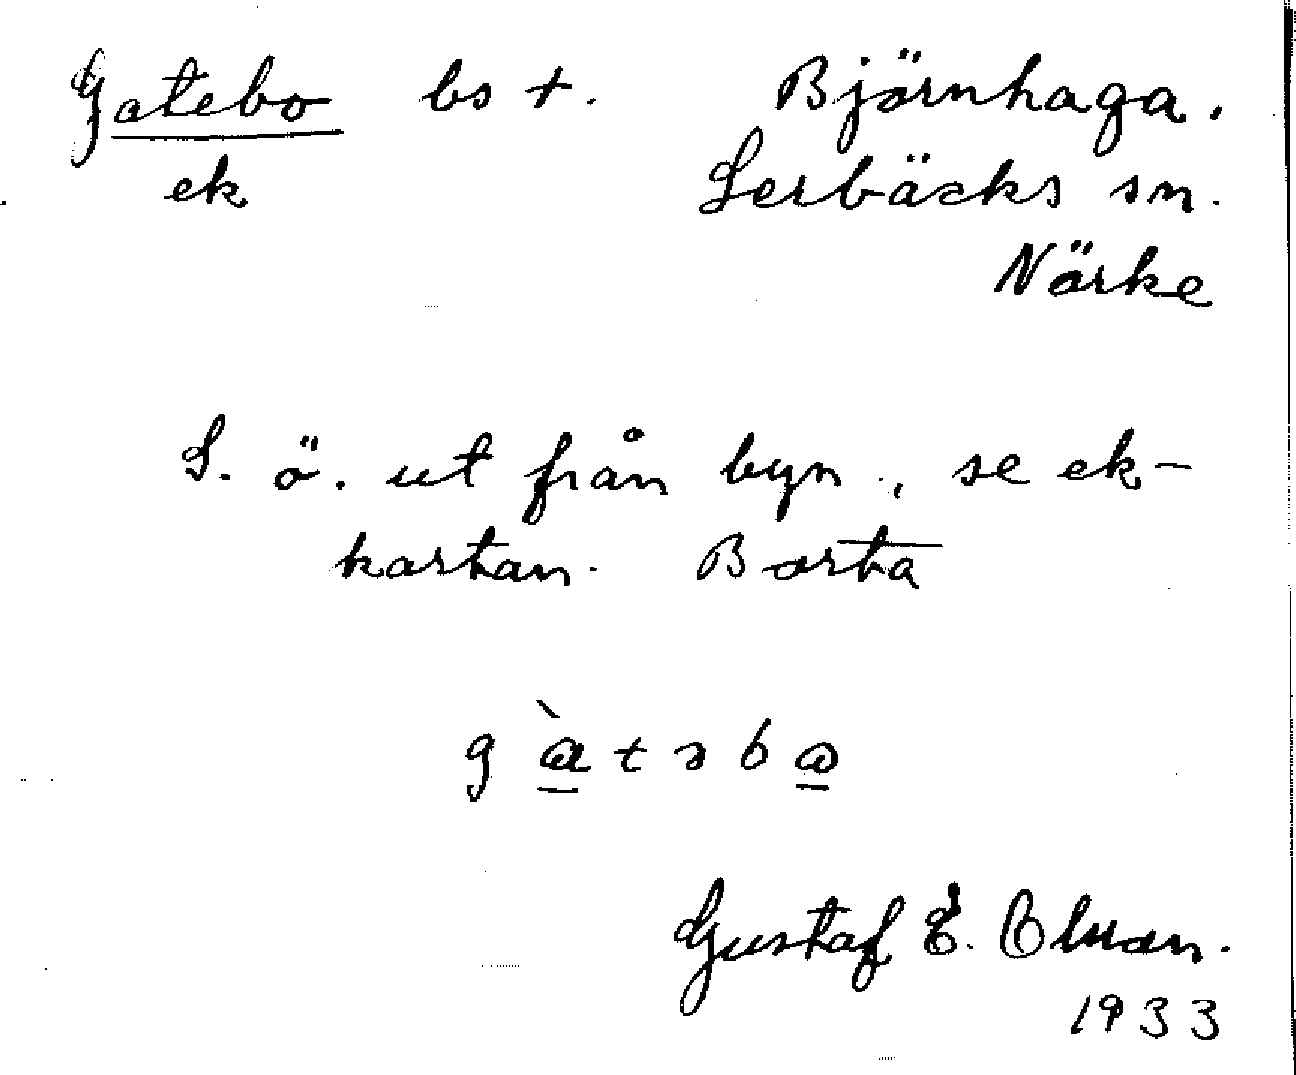 Gatebo bs +. Björnhaga.
ek Lerbäcks sn.
Närke
S. ö. ut från byn, se ek-
kartan. Borta
g à t ə b ɷ
Gustaf E. Olsson.
1933